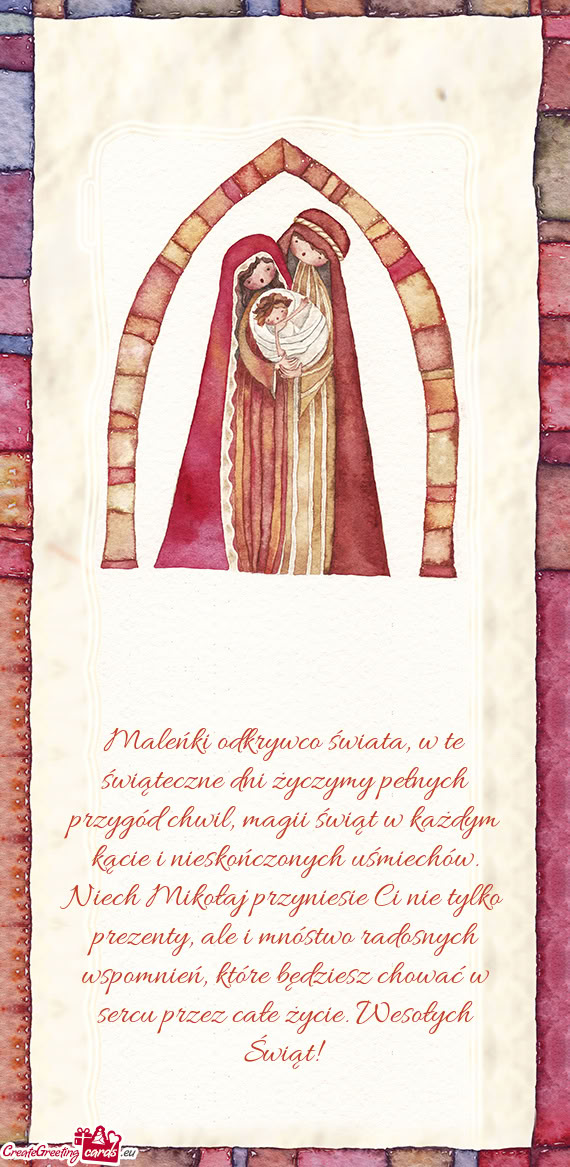 Maleńki odkrywco świata, w te
świąteczne dni życzymy pełnych
przygód chwil, magii świąt w każdym
kącie i nieskończonych uśmiechów.
Niech Mikołaj przyniesie Ci nie tylko
prezenty, ale i mnóstwo radosnych
wspomnień, które będziesz chować w
sercu przez całe życie. Wesołych
Świąt!
CreateGreeting cards .eu